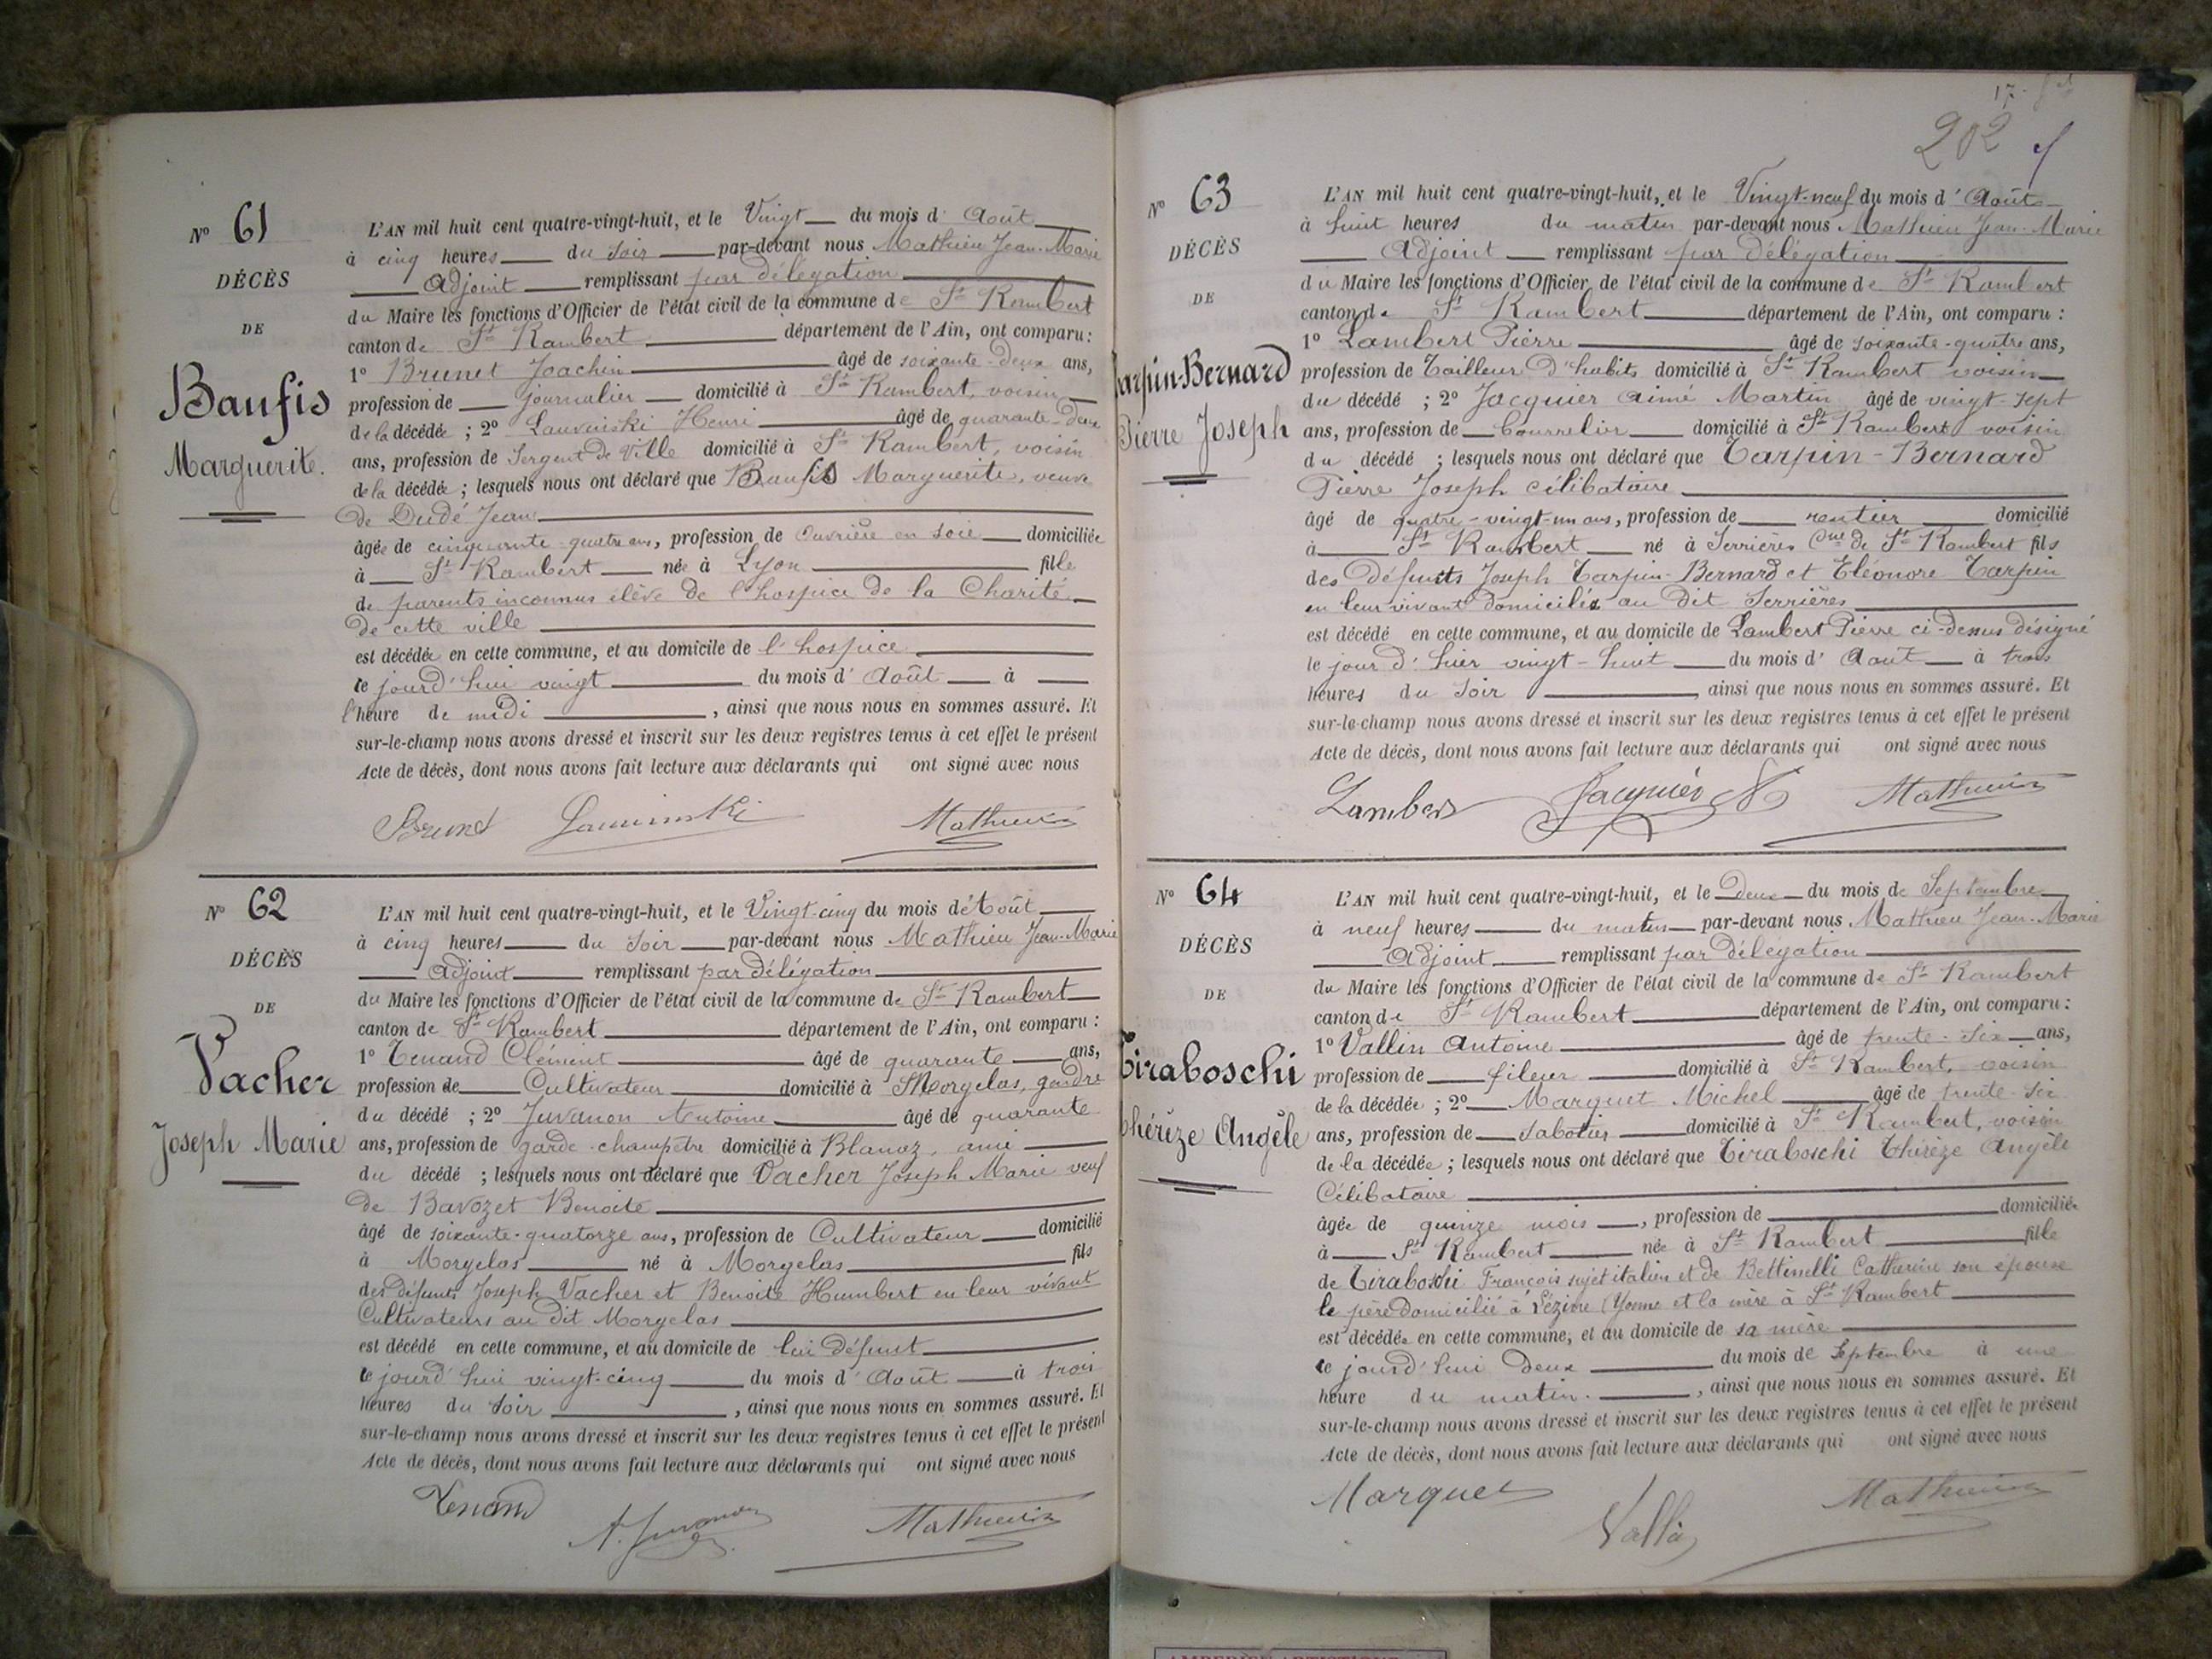 Nº 61
DÉCÈS
DE
Baufis
Marguerite.
L'AN mil huit cent quatre-vingt-huit, et le Vingt du mois d' Août
à cinq heures du soir par-devant nous Mathieu Jean-Marie
Adjoint remplissant par délégation
du Maire les fonctions d'Officier de l'état civil de la commune de St Rambert
canton de St Rambert département de l'Ain, ont comparu :
1º Brunet Joachin âgé de soixante-deux ans,
profession de journalier domicilié à St Rambert, voisin
de la décédée ; 2º Henri âgé de quarante-deux
ans, profession de Sergent de Ville domicilié à St Rambert, voisin
de la décédée ; lesquels nous ont déclaré que Baufis Marguerite, veuve
de Dudé Jean
âgée de cinquante-quatre ans, profession de Ouvrière en soie domiciliée
à St Rambert née à Lyon fille
de parents inconnus élève de l'hospice de la Charité
de cette ville
est décédée en cette commune, et au domicile de l'hospice
le jourd'hui vingt du mois d' Août à
l'heure de midi , ainsi que nous nous en sommes assuré. Et
sur-le-champ nous avons dressé et inscrit sur les deux registres tenus à cet effet le présent
Acte de décès, dont nous avons fait lecture aux déclarants qui ont signé avec nous
Brunet Mathieu
Nº 62
DÉCÈS
DE
Vacher
Joseph Marie
L'AN mil huit cent quatre-vingt-huit, et le Vingt-cinq du mois d'Août
à cinq heures du soir par-devant nous Mathieu Jean-Marie
Adjoint remplissant par délégation
du Maire les fonctions d'Officier de l'état civil de la commune de St Rambert
canton de St Rambert département de l'Ain, ont comparu :
1º Tenand Clément âgé de quarante ans,
profession de Cultivateur domicilié à Morgelas, gendre
du décédé ; 2º Juvanon Antoine âgé de quarante
ans, profession de garde-champêtre domicilié à Blanaz, ami
du décédé ; lesquels nous ont déclaré que Vacher Joseph Marie veuf
de Bavozet Benoite
âgé de soixante-quatorze ans, profession de Cultivateur domicilié
à Morgelas né à Morgelas fils
des défunts Joseph Vacher et Benoite Humbert en leur vivant
Cultivateurs au dit Morgelas
est décédé en cette commune, et au domicile de lui défunt
le jourd'hui vingt-cinq du mois d' Août à trois
heures du soir , ainsi que nous nous en sommes assuré. Et
sur-le-champ nous avons dressé et inscrit sur les deux registres tenus à cet effet le présent
Acte de décès, dont nous avons fait lecture aux déclarants qui ont signé avec nous
Tenand A. Juvanon Mathieu
202
Nº 63
DÉCÈS
DE
arpin-Bernard
Pierre Joseph
L'AN mil huit cent quatre-vingt-huit, et le Vingt-neuf du mois d' Août
à huit heures du matin par-devant nous Mathieu Jean-Marie
Adjoint remplissant par délégation
du Maire les fonctions d'Officier de l'état civil de la commune de St Rambert
canton de St Rambert département de l'Ain, ont comparu :
1º Lambert Pierre âgé de soixante-quatre ans,
profession de Tailleur d'habits domicilié à St Rambert voisin
du décédé ; 2º Jacquier Aimé Martin âgé de vingt-sept
ans, profession de Bourrelier domicilié à St Rambert voisin
du décédé ; lesquels nous ont déclaré que Tarpin-Bernard
Pierre Joseph célibataire
âgé de quatre-vingt-un ans, profession de rentier domicilié
à St Rambert né à Serrières Cne de St Rambert fils
des défunts Joseph Tarpin-Bernard et Eléonore Tarpin
en leur vivant domiciliés au dit Serrières
est décédé en cette commune, et au domicile de Lambert Pierre ci-dessus désigné
le jour d'hier vingt-huit du mois d' Août à trois
heures du soir , ainsi que nous nous en sommes assuré. Et
sur-le-champ nous avons dressé et inscrit sur les deux registres tenus à cet effet le présent
Acte de décès, dont nous avons fait lecture aux déclarants qui ont signé avec nous
Lambert Jacquier Mathieu
Nº 64
DÉCÈS
DE
Tiraboschi
Thérèze Angèle
L'AN mil huit cent quatre-vingt-huit, et le Deux du mois de Septembre
à neuf heures du matin par-devant nous Mathieu Jean-Marie
Adjoint remplissant par délégation
du Maire les fonctions d'Officier de l'état civil de la commune de St Rambert
canton de St Rambert département de l'Ain, ont comparu :
1º Vallin Antoine âgé de trente-six ans,
profession de fileur domicilié à St Rambert, voisin
de la décédée ; 2º Marquet Michel âgé de trente-six
ans, profession de sabotier domicilié à St Rambert, voisin
de la décédée ; lesquels nous ont déclaré que Tiraboschi Thérèze Angèle
Célibataire
âgée de quinze mois , profession de domiciliée
à St Rambert née à St Rambert fille
de Tiraboschi François sujet italien et de Bettinelli Catherine son épouse
le père domicilié à Lézine (Yonne et la mère à St Rambert
est décédée en cette commune, et au domicile de sa mère
le jourd'hui deux du mois de Septembre à une
heure du matin. , ainsi que nous nous en sommes assuré. Et
sur-le-champ nous avons dressé et inscrit sur les deux registres tenus à cet effet le présent
Acte de décès, dont nous avons fait lecture aux déclarants qui ont signé avec nous
Marquet Vallin Mathieu